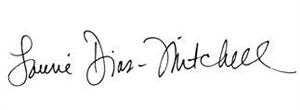 Laurie Dias-Mitchell